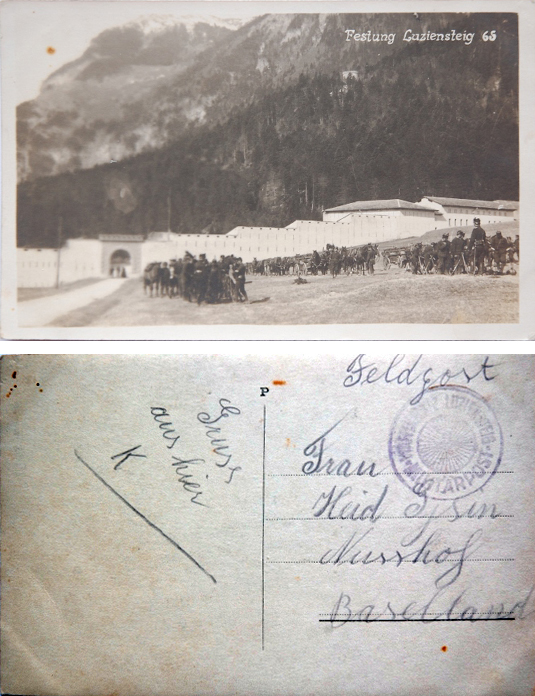 Festung Luziensteig 65
P
Feldpost
Gruss
aus hier
K
Frau
Heid
Nusshof
Baselland
MILITÄRPOST